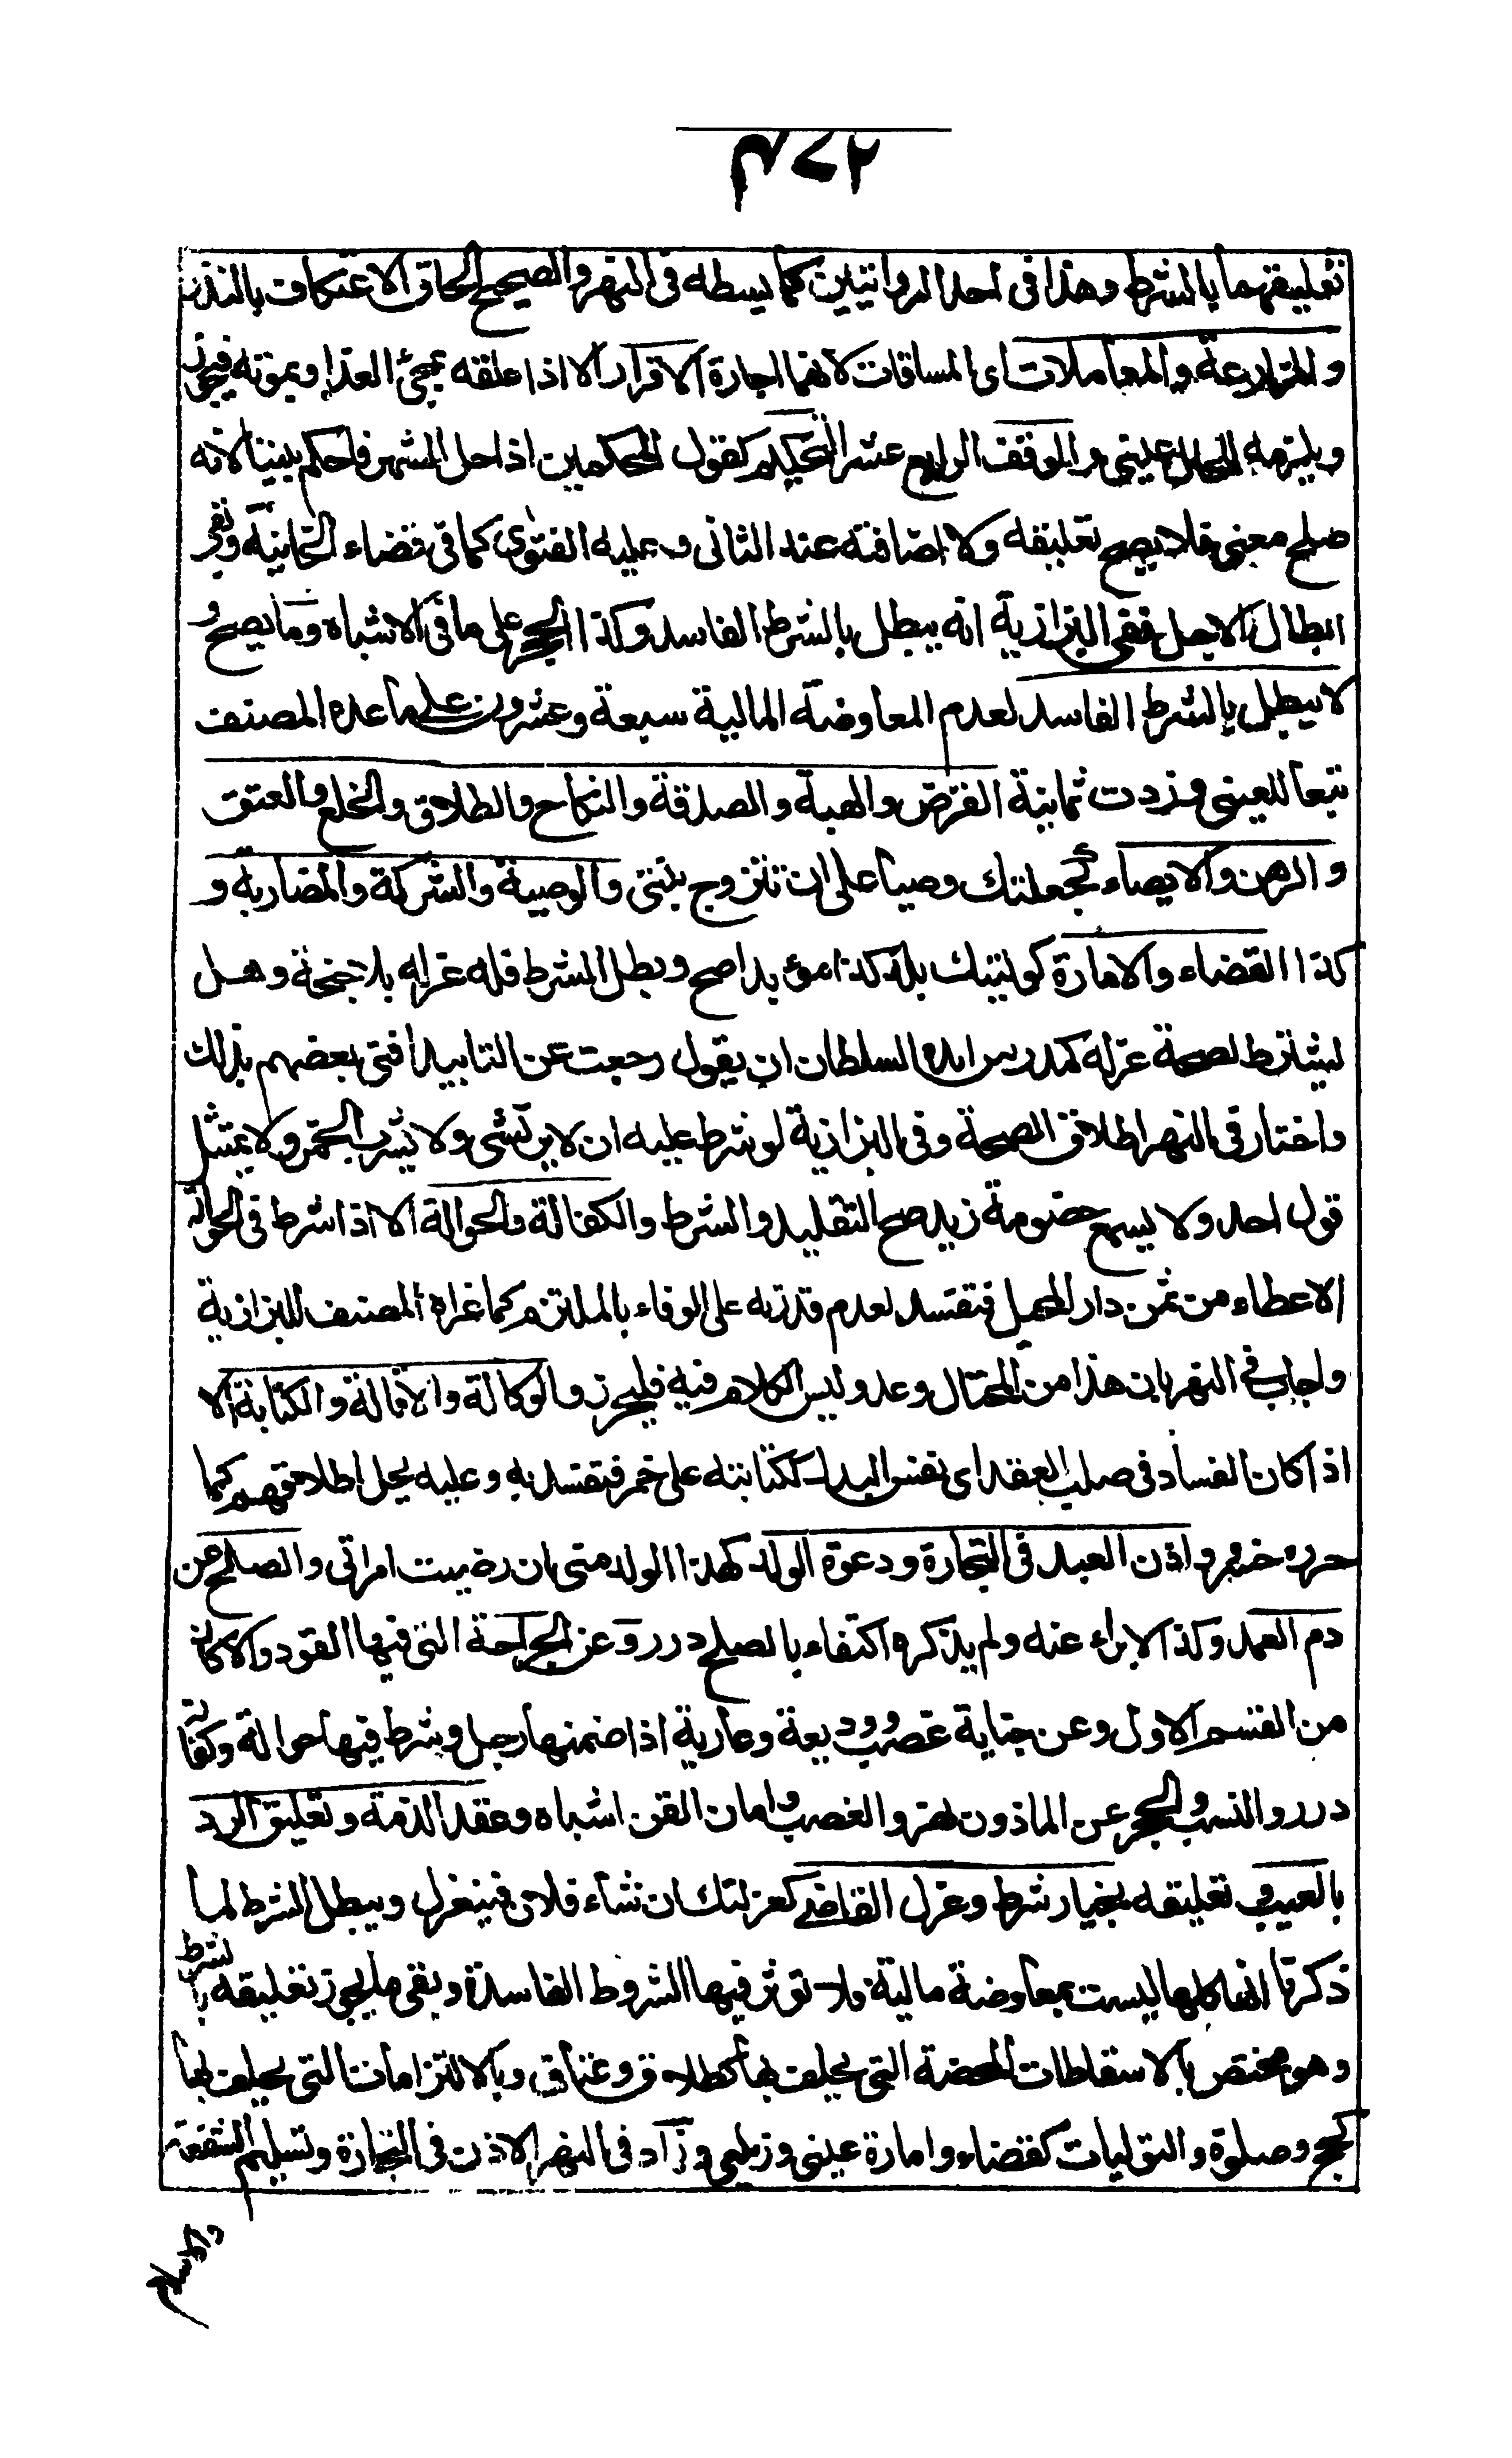 ٣٧٢
تعليقهما بالشرط وهذا فى احد الروايتين كما بسطه فى النهر والصحيح الحاق الاعتكاف بالنذر
والمزارعة والمعاملات اى المساقات لانهما اجارة الاقرار الا اذا علقه بمجئ الغد او بموته فيجوز
ويلزمه للحال عينى والوقف الرابع عشر التحكيم كقول المحكمين اذا احل الشهر فاحكم بيننا لانه
صلح معنى فلا يصح تعليقه ولا اضافته عند الثانى وعليه الفتوى كما فى قضاء الخانية وبقى
ابطال الاجل ففى البزازية انه يبطل بالشرط الفاسد وكذا الحجر على ما فى الاشباه وما يصح و
لا يبطل بالشرط الفاسد لعدم المعاوضة المالية سبعة وعشرون على ما عده المصنف
تبعا للعينى وزدت ثمانية القرض والهبة والصدقة والنكاح والطلاق والخلع والعتق
والرهن والايصاء كجعلتك وصيا على ان تتزوج بنتى والوصية والشركة والمضاربة و
كذا القضاء والامارة كوليتك بلد كذا مؤبدا صح وبطل الشرط فله عزله بلا جنحة وهل
يشترط لصحة عزله كمدرس ابده السلطان ان يقول رجعت عن التابيد افتى بعضهم بذلك
واختار فى النهر اطلاق الصحة وفى البزازية لو شرط عليه ان لا يرتشى ولا يشرب الخمر ولا يمتثل
قول احد ولا يسمع خصومة زيد صح التقليد والشرط والكفالة والحوالة الا اذا شرط فى الحوالة
الاعطاء من ثمن دار المحيل فتفسد لعدم قدرته على الوفاء بالملتزم كما عزاه المصنف للبزازية
واجاب فى النهر بان هذا من المحتال وعد وليس الكلام فيه فليحرر والوكالة والاقالة والكتابة الا
اذا كان الفساد فى صلب العقد اى نفس البدل ككتابته على خمر فتفسد به وعليه يحمل اطلاقهم كما
حرره خسرو واذن العبد فى التجارة ودعوة الولد كهذا الولد متى ان رضيت امراتى والصلح عن
دم العمد وكذا الابراء عنه ولم يذكره اكتفاء بالصلح درر وعن الجراحة التى فيها القود والا كان
من القسم الاول وعن جناية غصب ووديعة وعارية اذا ضمنها رجل وشرط فيها حوالة وكفالة
درر والنسب والحجر عن الماذون نهر والغصب وامان القن اشباه وعقد الذمة وتعليق الرد
بالعيب وتعليقه بخيار شرط وعزل القاضى كعزلتك ان شاء فلان فينعزل ويبطل الشرط لما
ذكرنا انها كلها ليست بمعاوضة مالية فلا تؤثر فيها الشروط الفاسدة وبقى ما يجوز تعليقه بالشرط
وهو مختص بالاسقاطات المحضة التى يحلف بها كطلاق وعتاق وبالالتزامات التى يحلف بها
كحج وصلوة والتوليات كقضاء وامارة عينى وزيلعى وزاد فى النهر الاذن فى التجارة وتسليم الشفعة